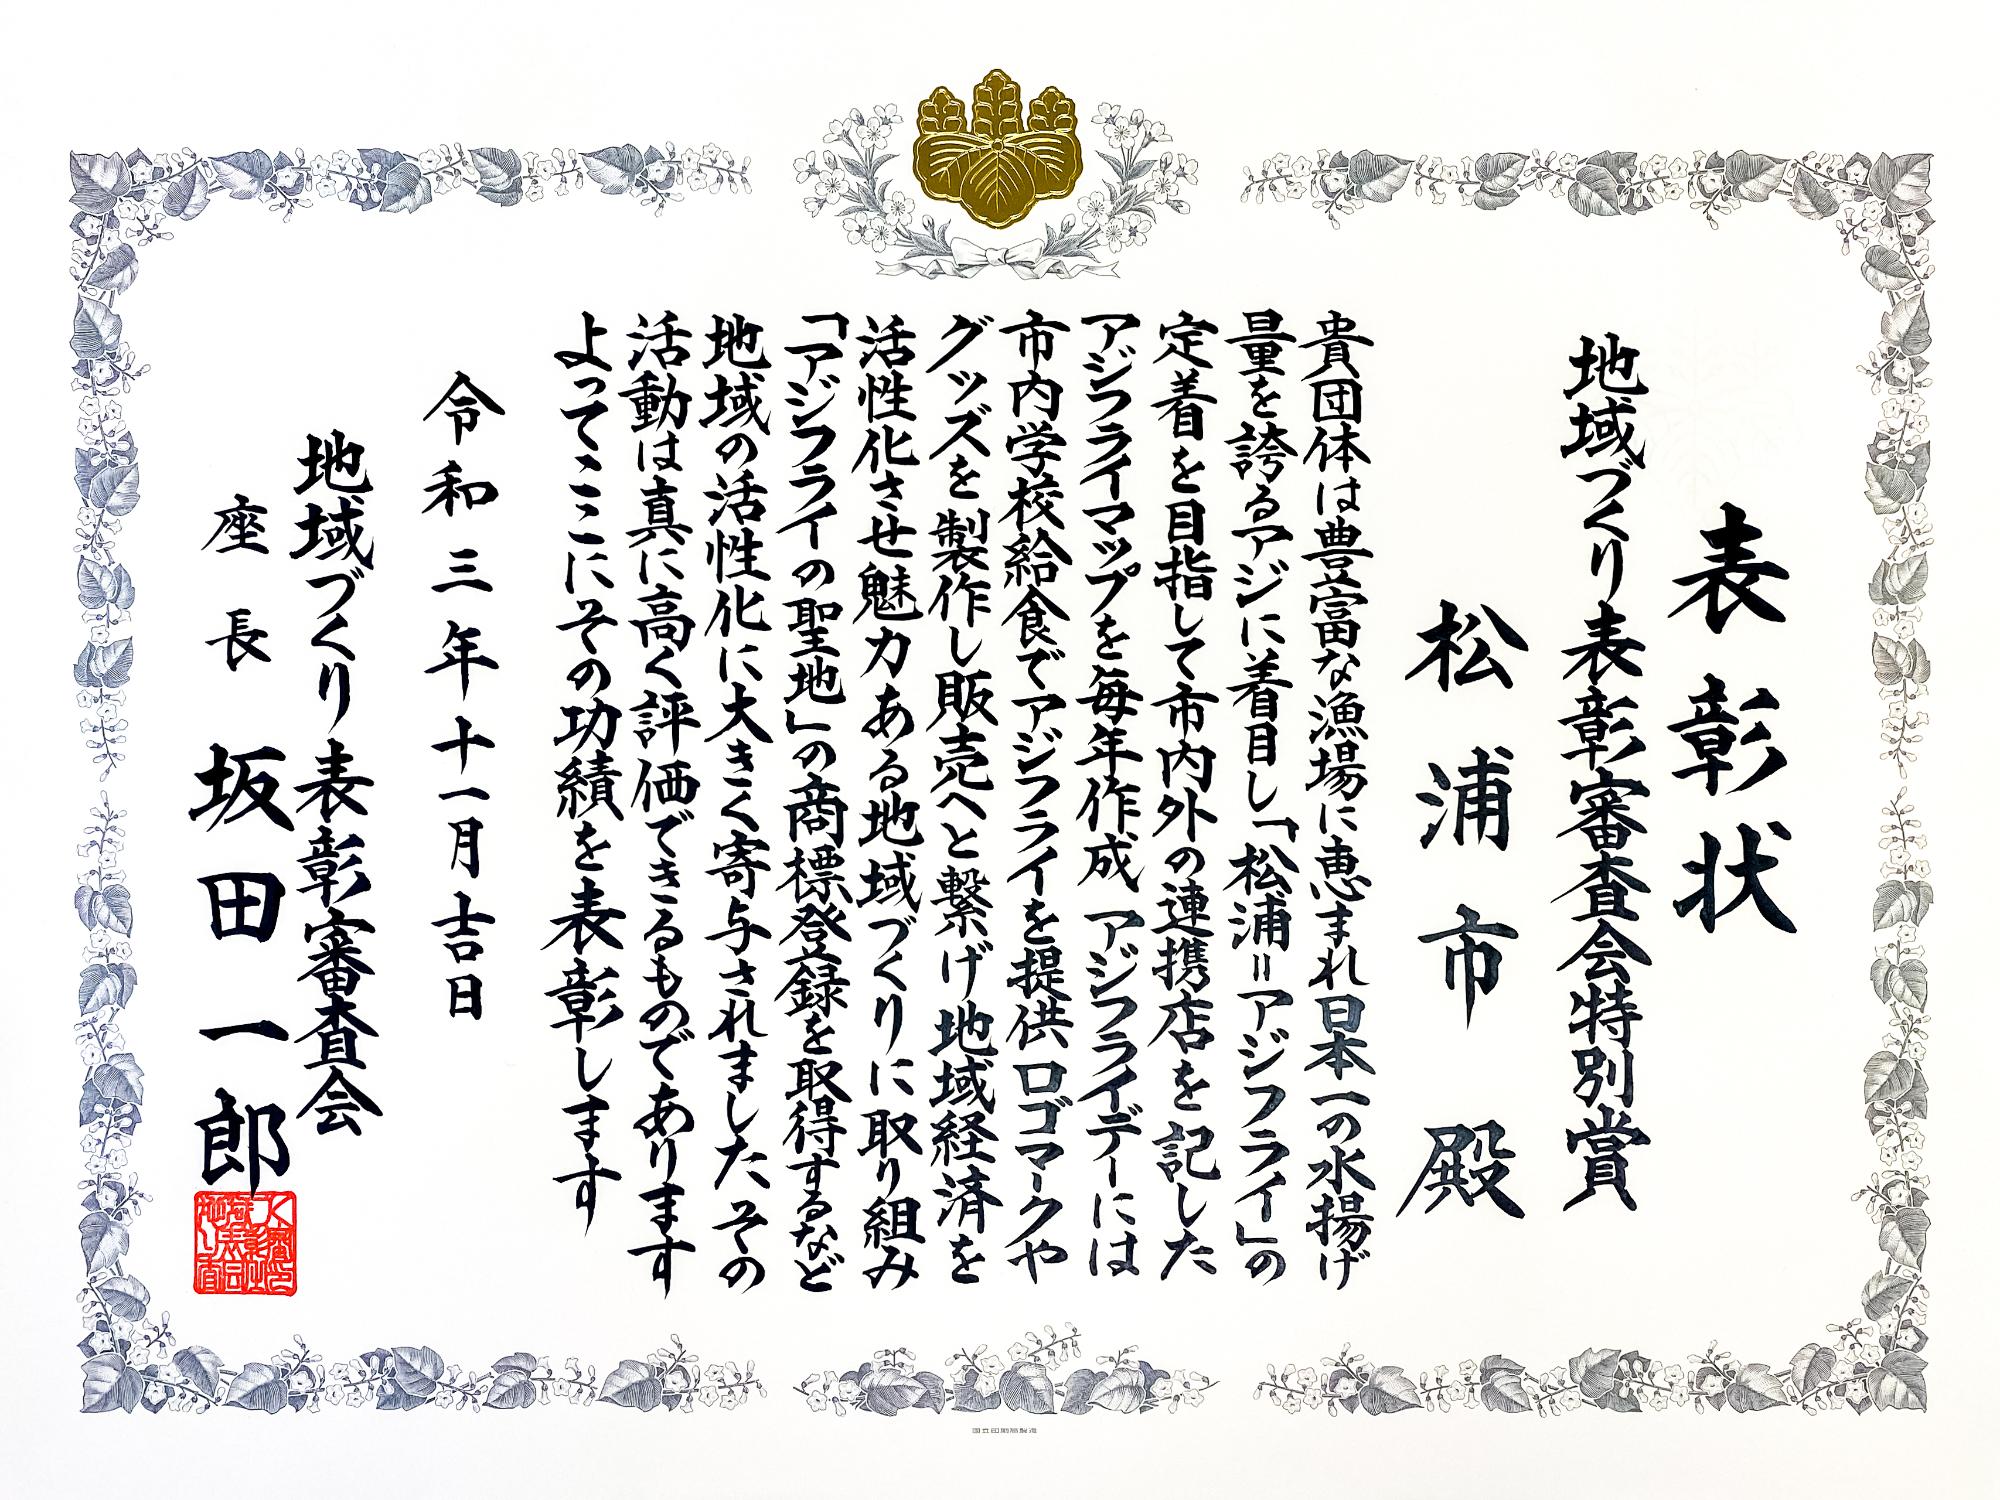 表彰状
地域づくり表彰審査会特別賞
松浦市殿
貴団体は豊富な漁場に恵まれ日本一の水揚げ
量を誇るアジに着目し「松浦=アジフライ」の
定着を目指して市内外の連携店を記した
アジフライマップを毎年作成 アジフライデーには
市内学校給食でアジフライを提供 ロゴマークや
グッズを製作し販売へと繋げ地域経済を
活性化させ魅力ある地域づくりに取り組み
「アジフライの聖地」の商標登録を取得するなど
地域の活性化に大きく寄与されました その
活動は真に高く評価できるものであります
よってここにその功績を表彰します
令和三年十一月吉日
地域づくり表彰審査会
座長 坂田一郎
国立印刷局製造